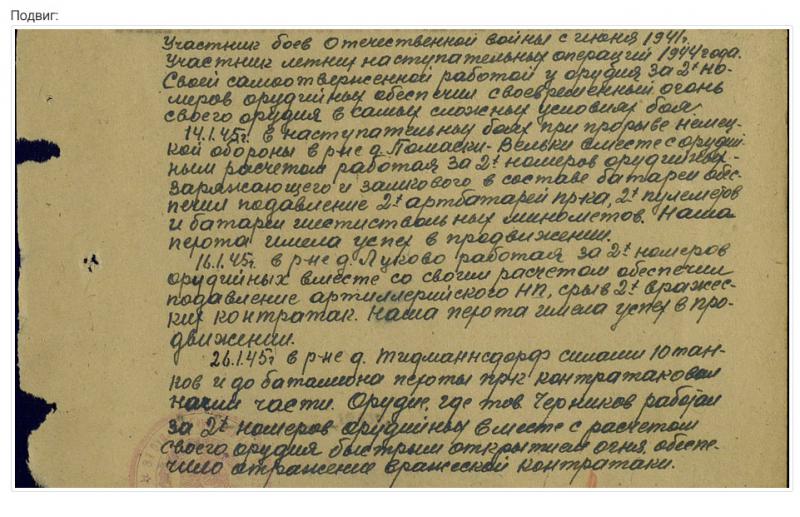 Подвиг:
Участник боев Отечественной войны с июня 1941г.
Участник летних наступательных операций 1944 года.
Своей самоотверженной работой у орудия за 2х но-
меров орудийных обеспечил своевременный огонь
своего орудия в самых сложных условиях боя.
14.1.45г. в наступательных боях при прорыве немец-
кой обороны в р-не д. Помаски-Вельки вместе с орудий-
ным расчетом работая за 2х номеров орудийных -
заряжающего и замкового в составе батареи обес-
печил подавление 2х артбатарей пр-ка, 2х пулеметов
и батареи шестиствольных минометов. Наша
пехота имела успех в продвижении.
16.1.45г. в р-не д. Луково работая за 2х номеров
орудийных вместе со своим расчетом обеспечил
подавление артиллерийского НП, срыв 2х вражес-
ких контратак. Наша пехота имела успех в про-
движении.
26.1.45г в р-не д. Тидманнсдорф силами 10 тан-
ков и до батальона пехоты пр-к контратаковал
наши части. Орудие, где тов. Черников работал
за 2х номеров орудийных вместе с расчетом
своего орудия быстрым открытием огня, обеспе-
чило отражение вражеской контратаки.